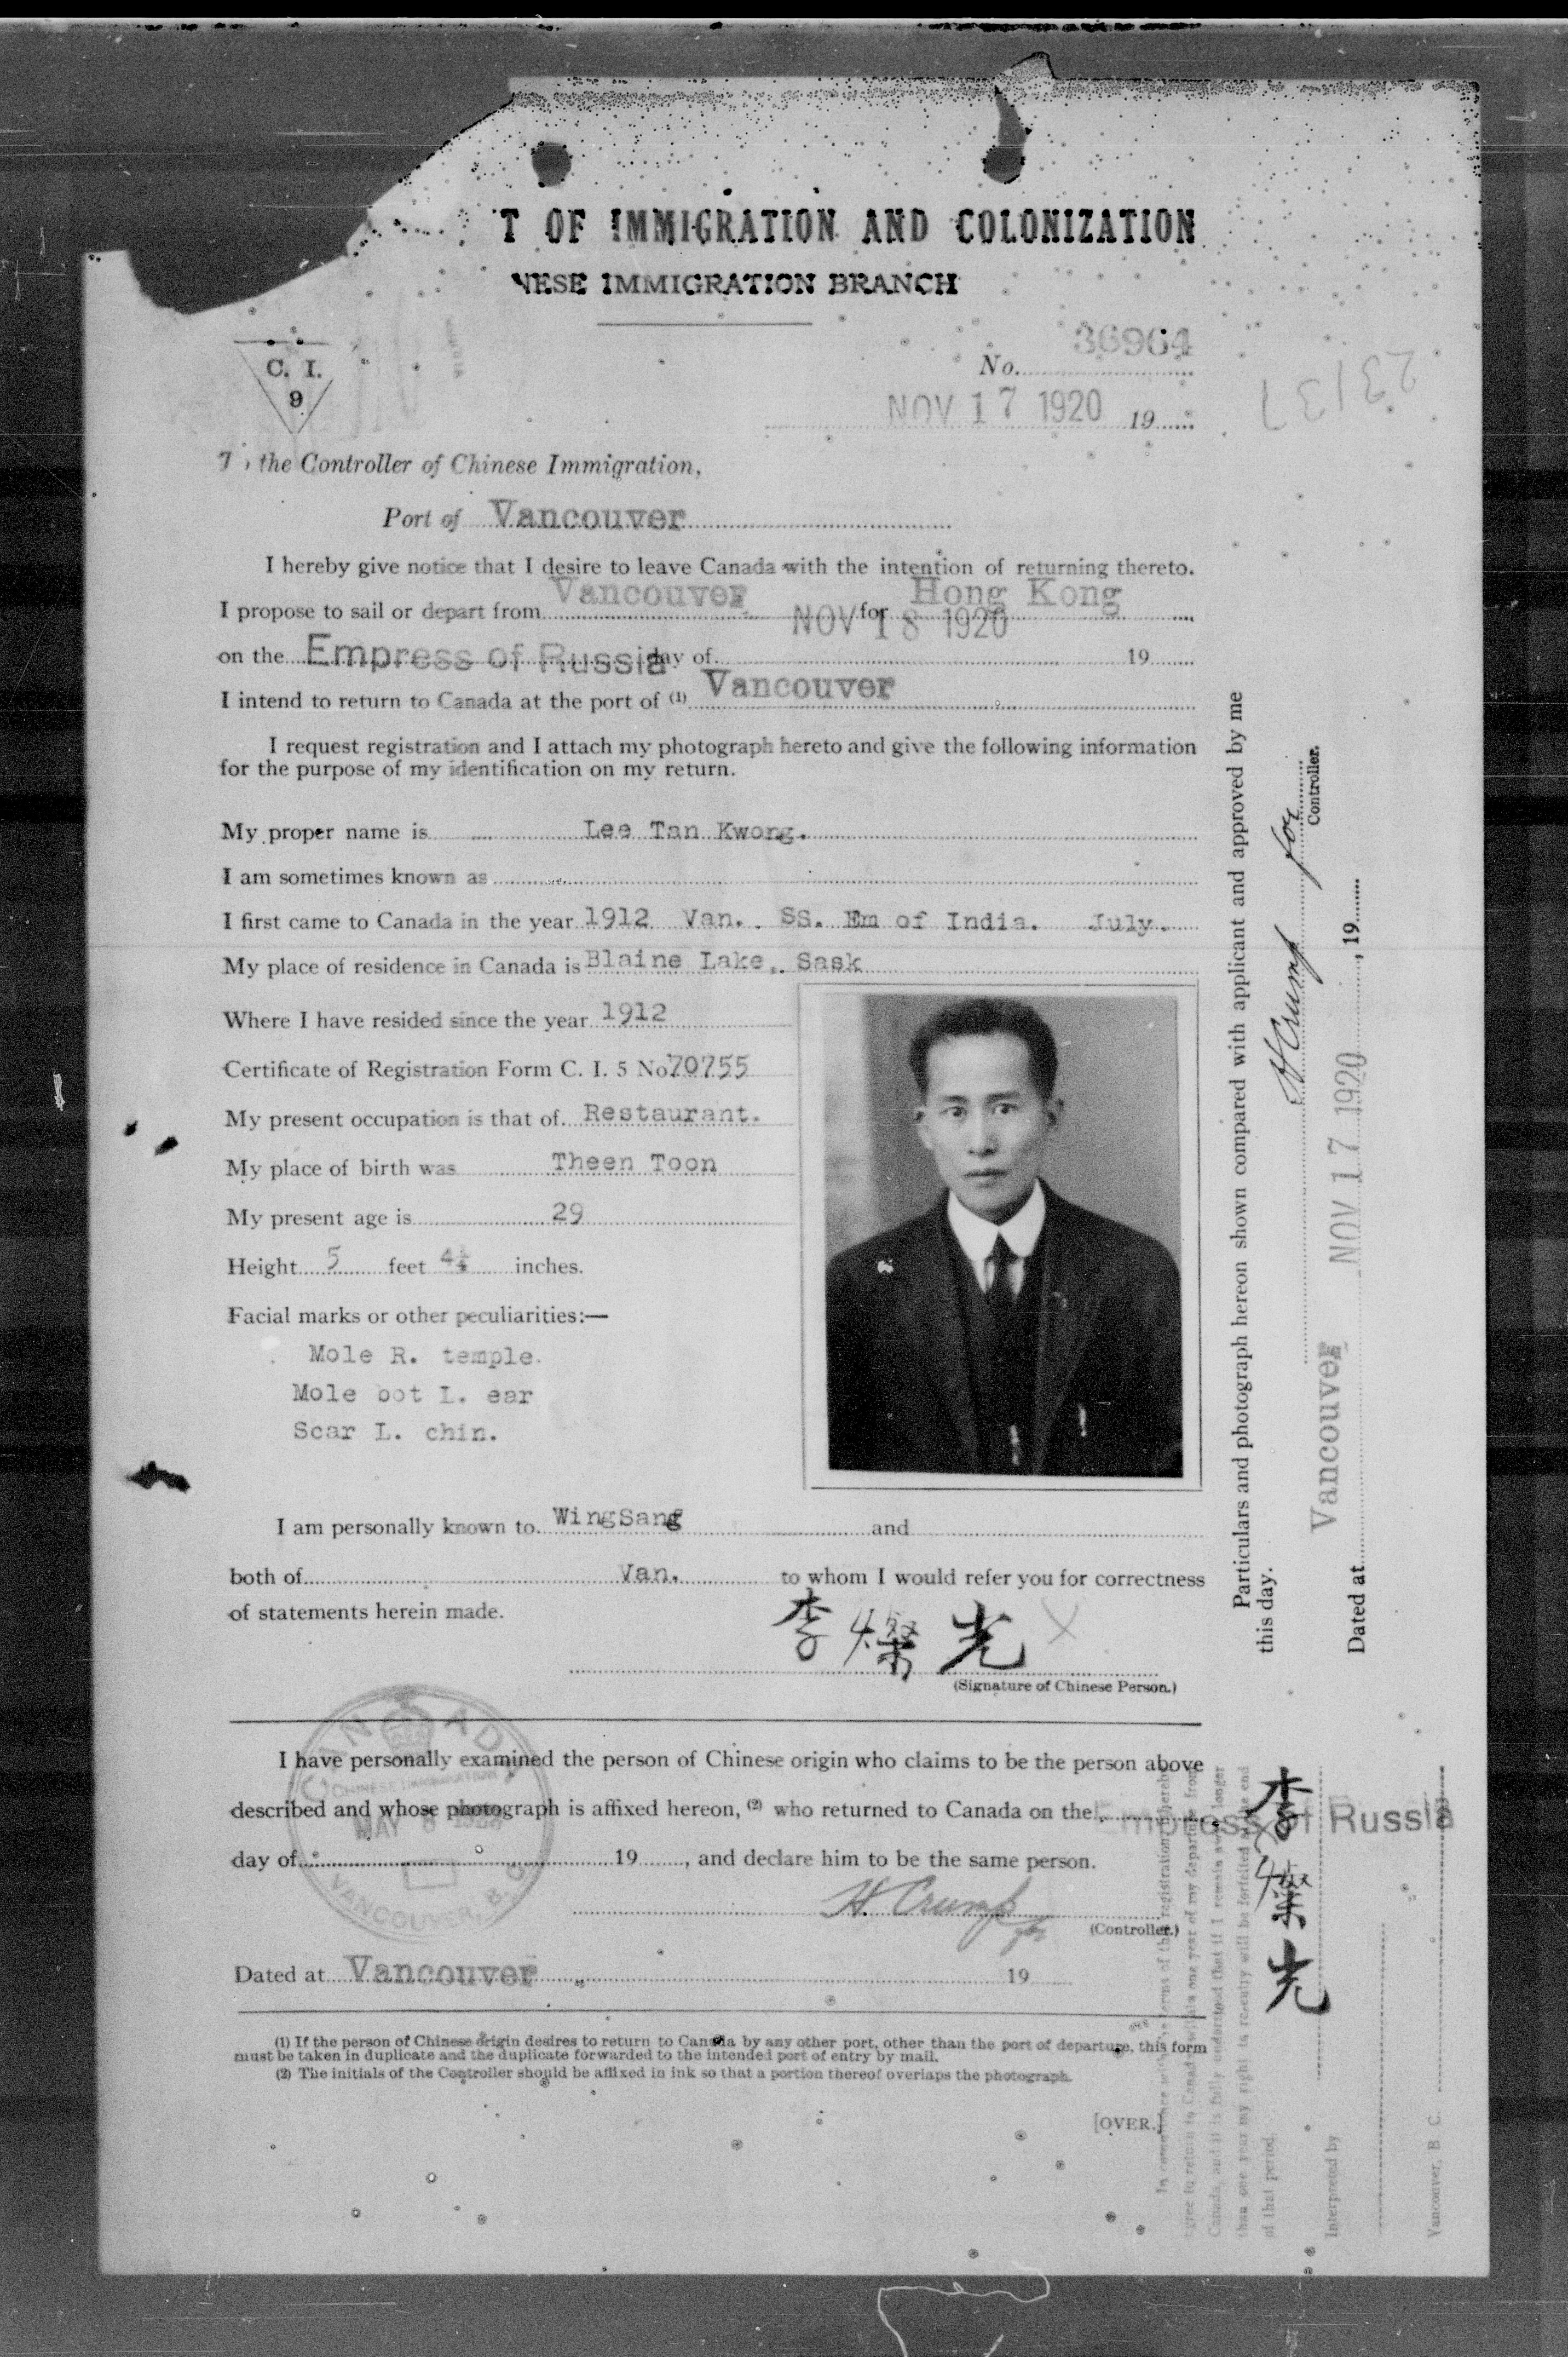 T OF IMMIGRATION AND COLONIZATION
NESE IMMIGRATION BRANCH
C. I.
9
No. 36964
NOV 17 1920 19
23137
the Controller of Chinese Immigration,
Port of Vancouver
I hereby give notice that I desire to leave Canada with the intention of returning thereto.
I propose to sail or depart from Vancouver for Hong Kong
NOV 18 1920
on the Empress of Russia day of 19
I intend to return to Canada at the port of (1) Vancouver
I request registration and I attach my photograph hereto and give the following information
for the purpose of my identification on my return.
My proper name is Lee Tan Kwong.
I am sometimes known as
I first came to Canada in the year 1912 Van. SS. Em of India. July.
My place of residence in Canada is Blaine Lake, Sask
Where I have resided since the year 1912
Certificate of Registration Form C. I. 5 No 70755
My present occupation is that of Restaurant.
My place of birth was Theen Toon
My present age is 29
Height 5 feet 4¼ inches.
Facial marks or other peculiarities:—
Mole R. temple.
Mole bot L. ear
Scar L. chin.
I am personally known to WingSang and
both of Van. to whom I would refer you for correctness
of statements herein made.
李燦光 X
(Signature of Chinese Person.)
I have personally examined the person of Chinese origin who claims to be the person above
described and whose photograph is affixed hereon, (2) who returned to Canada on the Empress of Russia
day of 19, and declare him to be the same person.
H. Crump for
(Controller.)
Dated at Vancouver 19
CANADA
CHINESE IMMIGRATION
MAY
VANCOUVER, B.C.
(1) If the person of Chinese origin desires to return to Canada by any other port, other than the port of departure, this form
must be taken in duplicate and the duplicate forwarded to the intended port of entry by mail.
(2) The initials of the Controller should be affixed in ink so that a portion thereof overlaps the photograph.
[OVER.]
Particulars and photograph hereon shown compared with applicant and approved by me
this day.
H Crump for
Controller.
Dated at Vancouver NOV 17 1920, 19
李燦光
of that period.
Interpreted by
Vancouver, B. C.